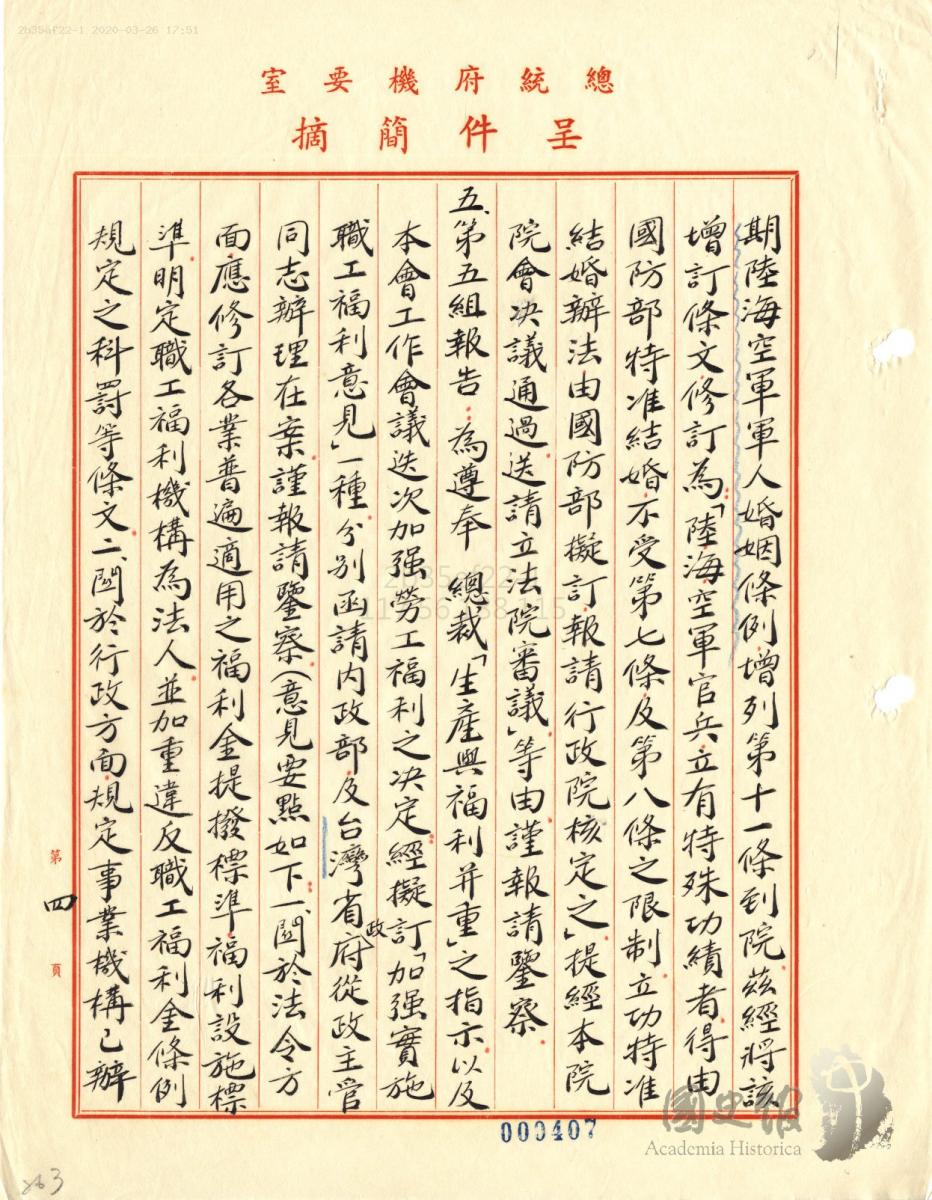 2b356f22-1 2020-03-26 17:51
總統府機要室
呈件簡摘
期陸海空軍軍人婚姻條例增列第十一條到院茲經將該
增訂條文修訂為「陸海空軍官兵立有特殊功績者得由
國防部特准結婚不受第七條及第八條之限制立功特准
結婚辦法由國防部擬訂報請行政院核定之」提經本院
院會决議通過送請立法院審議」等由謹報請鑒察
五、第五組報告:為遵奉 總裁「生產與福利并重」之指示以及
本會工作會議迭次加强勞工福利之决定經擬訂「加强實施
職工福利意見」一種分别函請内政部及台灣省政府從政主管
同志辦理在案謹報請鑒察(意見要點如下:一、關於法令方
面應修訂各業普遍適用之福利金提撥標準福利設施標
準明定職工福利機構為法人並加重違反職工福利金條例
規定之科罰等條文二、關於行政方面規定事業機構已辦
第四頁
000407
國史館
Academia Historica
263